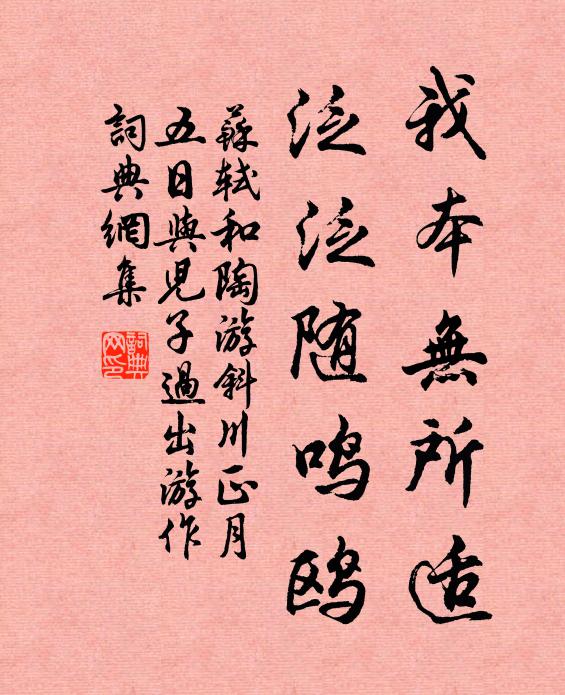 我本無所适
泛泛随鸣鸥
蘇軾和陶游斜川正月
五日與児子過出游作
詞典網集
詞典網印